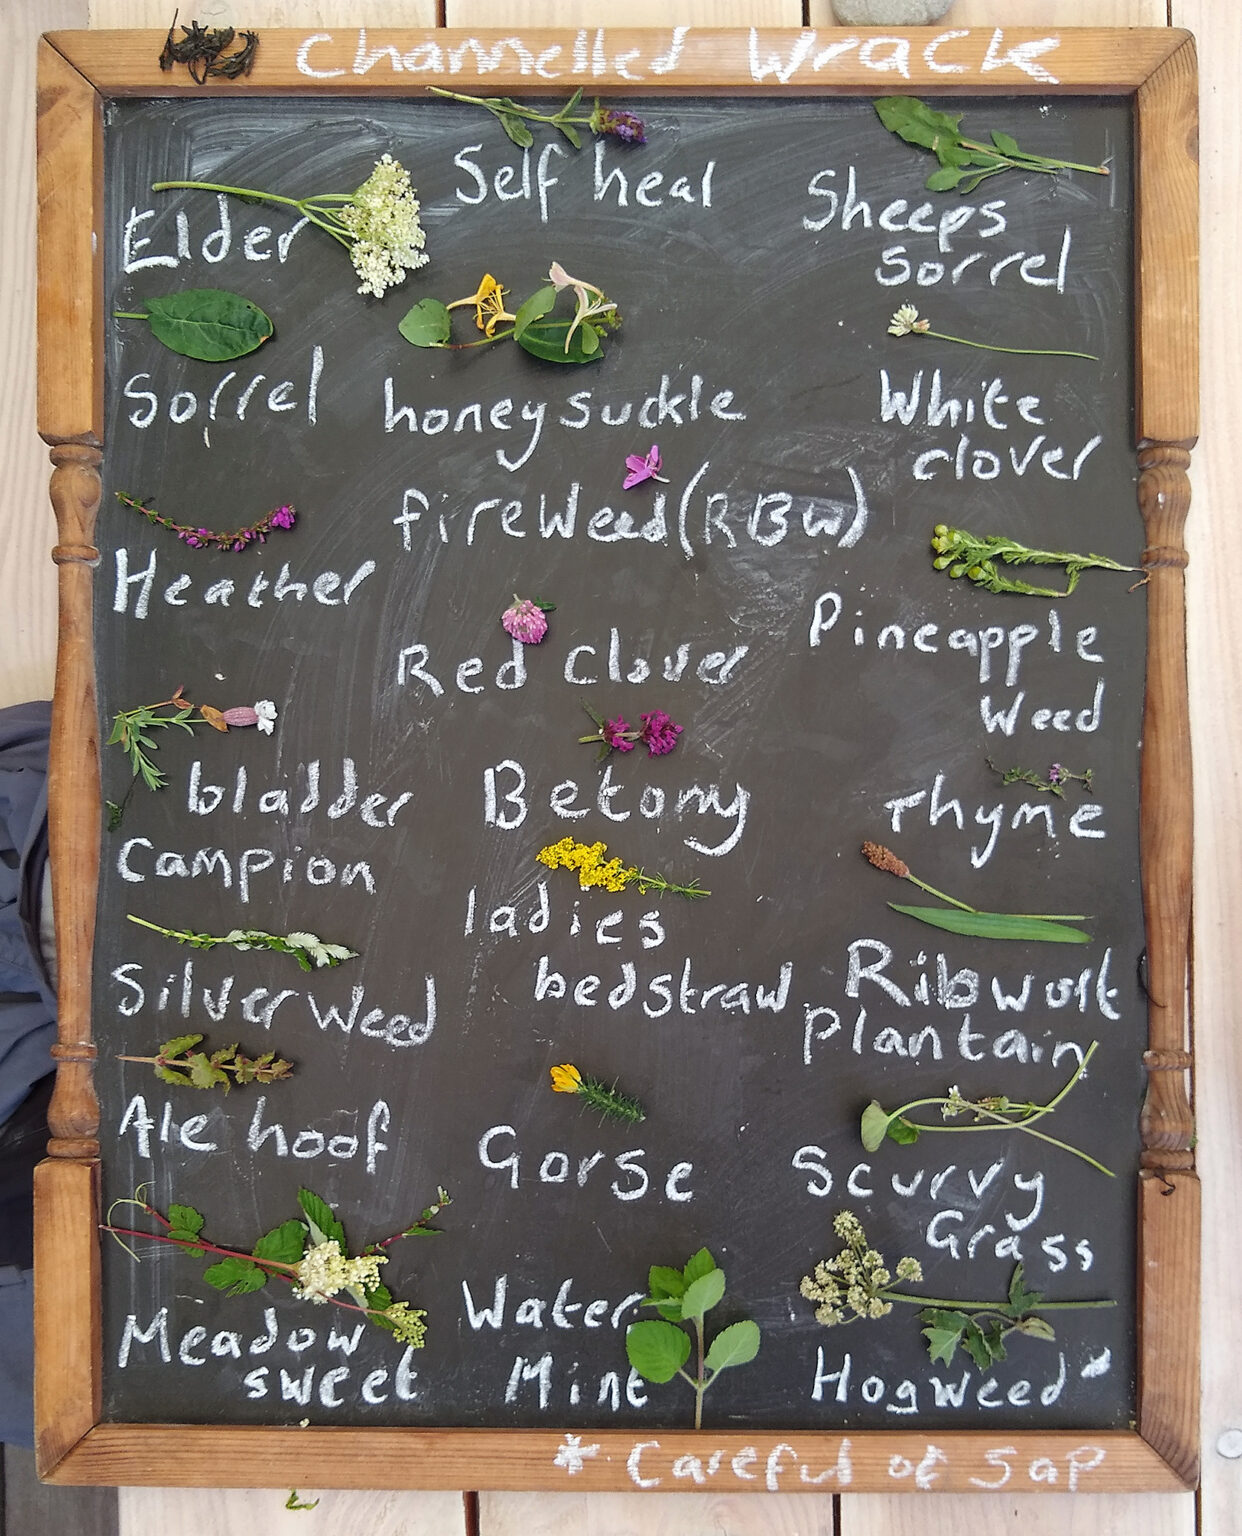 Channelled Wrack
Self heal
Elder
Sheeps
sorrel
Sorrel
honey suckle
White
clover
fireweed (RBW)
Heather
Red Clover
Pineapple
Weed
bladder
Campion
Betony
Thyme
ladies
bedstraw
Silverweed
Ribwort
plantain
Ale hoof
Gorse
Scurvy
Grass
Meadow
sweet
Water
Mint
Hogweed*
* Careful of Sap